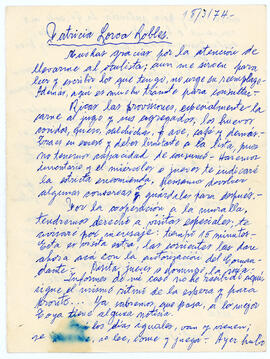 18/3/74.-
Patricia Lorca Robles.
Muchas gracias por la atención de
llevarme al dentista; aun me sirven para
leer y escribir los que tengo, no urge su reemplazo
Además, aquí es mucho trámite para consultas.-
Ricas las provisiones, especialmente la
carne al jugo y sus agregados, los huevos
duros, queso, salchichas. El ave, café y demás.-
Eras en exceso y debes limitarte a la lista, pues
no tenemos capacidad de consumo.- Haremos
inventario y el miércoles o jueves te indicaré
la justa encomienda. Pensamos devolver
algunas conservas q' guardarlas para después.-
Por la cooperación a la
tendremos derecho a visitas especiales, de
avisar por mensaje: tiempo 15 minutos.
Esta es visita extra, las corrientes las dan
ahora acá con la autorización del Coman
dante.- Visita, jueves o domingo, la
Informe de mi caso no he recibido aquí
sigue el mismo ritmo de la espera y para
pronto... Ya sabremos que pasa, a lo mejor
Goya tiene alguna noticia.
los días iguales, van y vienen;
se lee, come y juega.- Ayer hubo